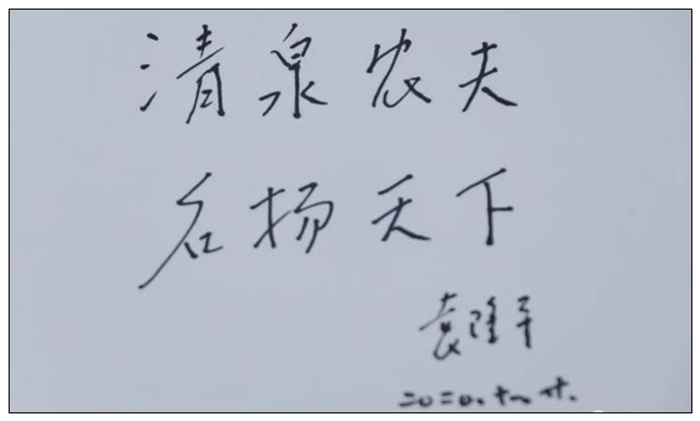 清泉农夫
名扬天下
袁隆平
二0二0.十.廿.